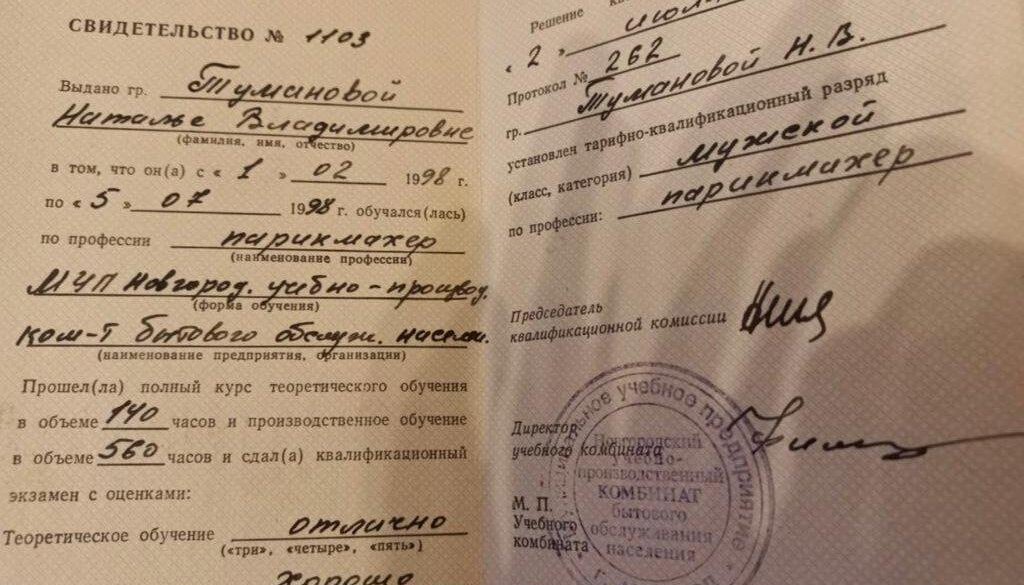 СВИДЕТЕЛЬСТВО № 1103
Выдано гр. Тумановой
Наталье Владимировне
(фамилия, имя, отчество)
в том, что он(а) с « 1 » 02 1998 г.
по « 5 » 07 1998 г. обучался(лась)
по профессии парикмахер
(наименование профессии)
МЧП Новгород. учебно-производ.
(форма обучения)
ком-т бытового обслуж. населен.
(наименование предприятия, организации)
Прошел(ла) полный курс теоретического обучения
в объеме 140 часов и производственное обучение
в объеме 560 часов и сдал(а) квалификационный
экзамен с оценками:
Теоретическое обучение отлично
(«три», «четыре», «пять»)
хорошо
Решение
« 2 » июля
Протокол № 262
гр. Тумановой Н. В.
установлен тарифно-квалификационный разряд
(класс, категория) мужской
по профессии: парикмахер
Председатель
квалификационной комиссии
Директор
учебного комбината
М. П.
Учебного
комбината
учебное предприятие
Новгородский
учебно-
производственный
КОМБИНАТ
бытового
обслуживания
населения